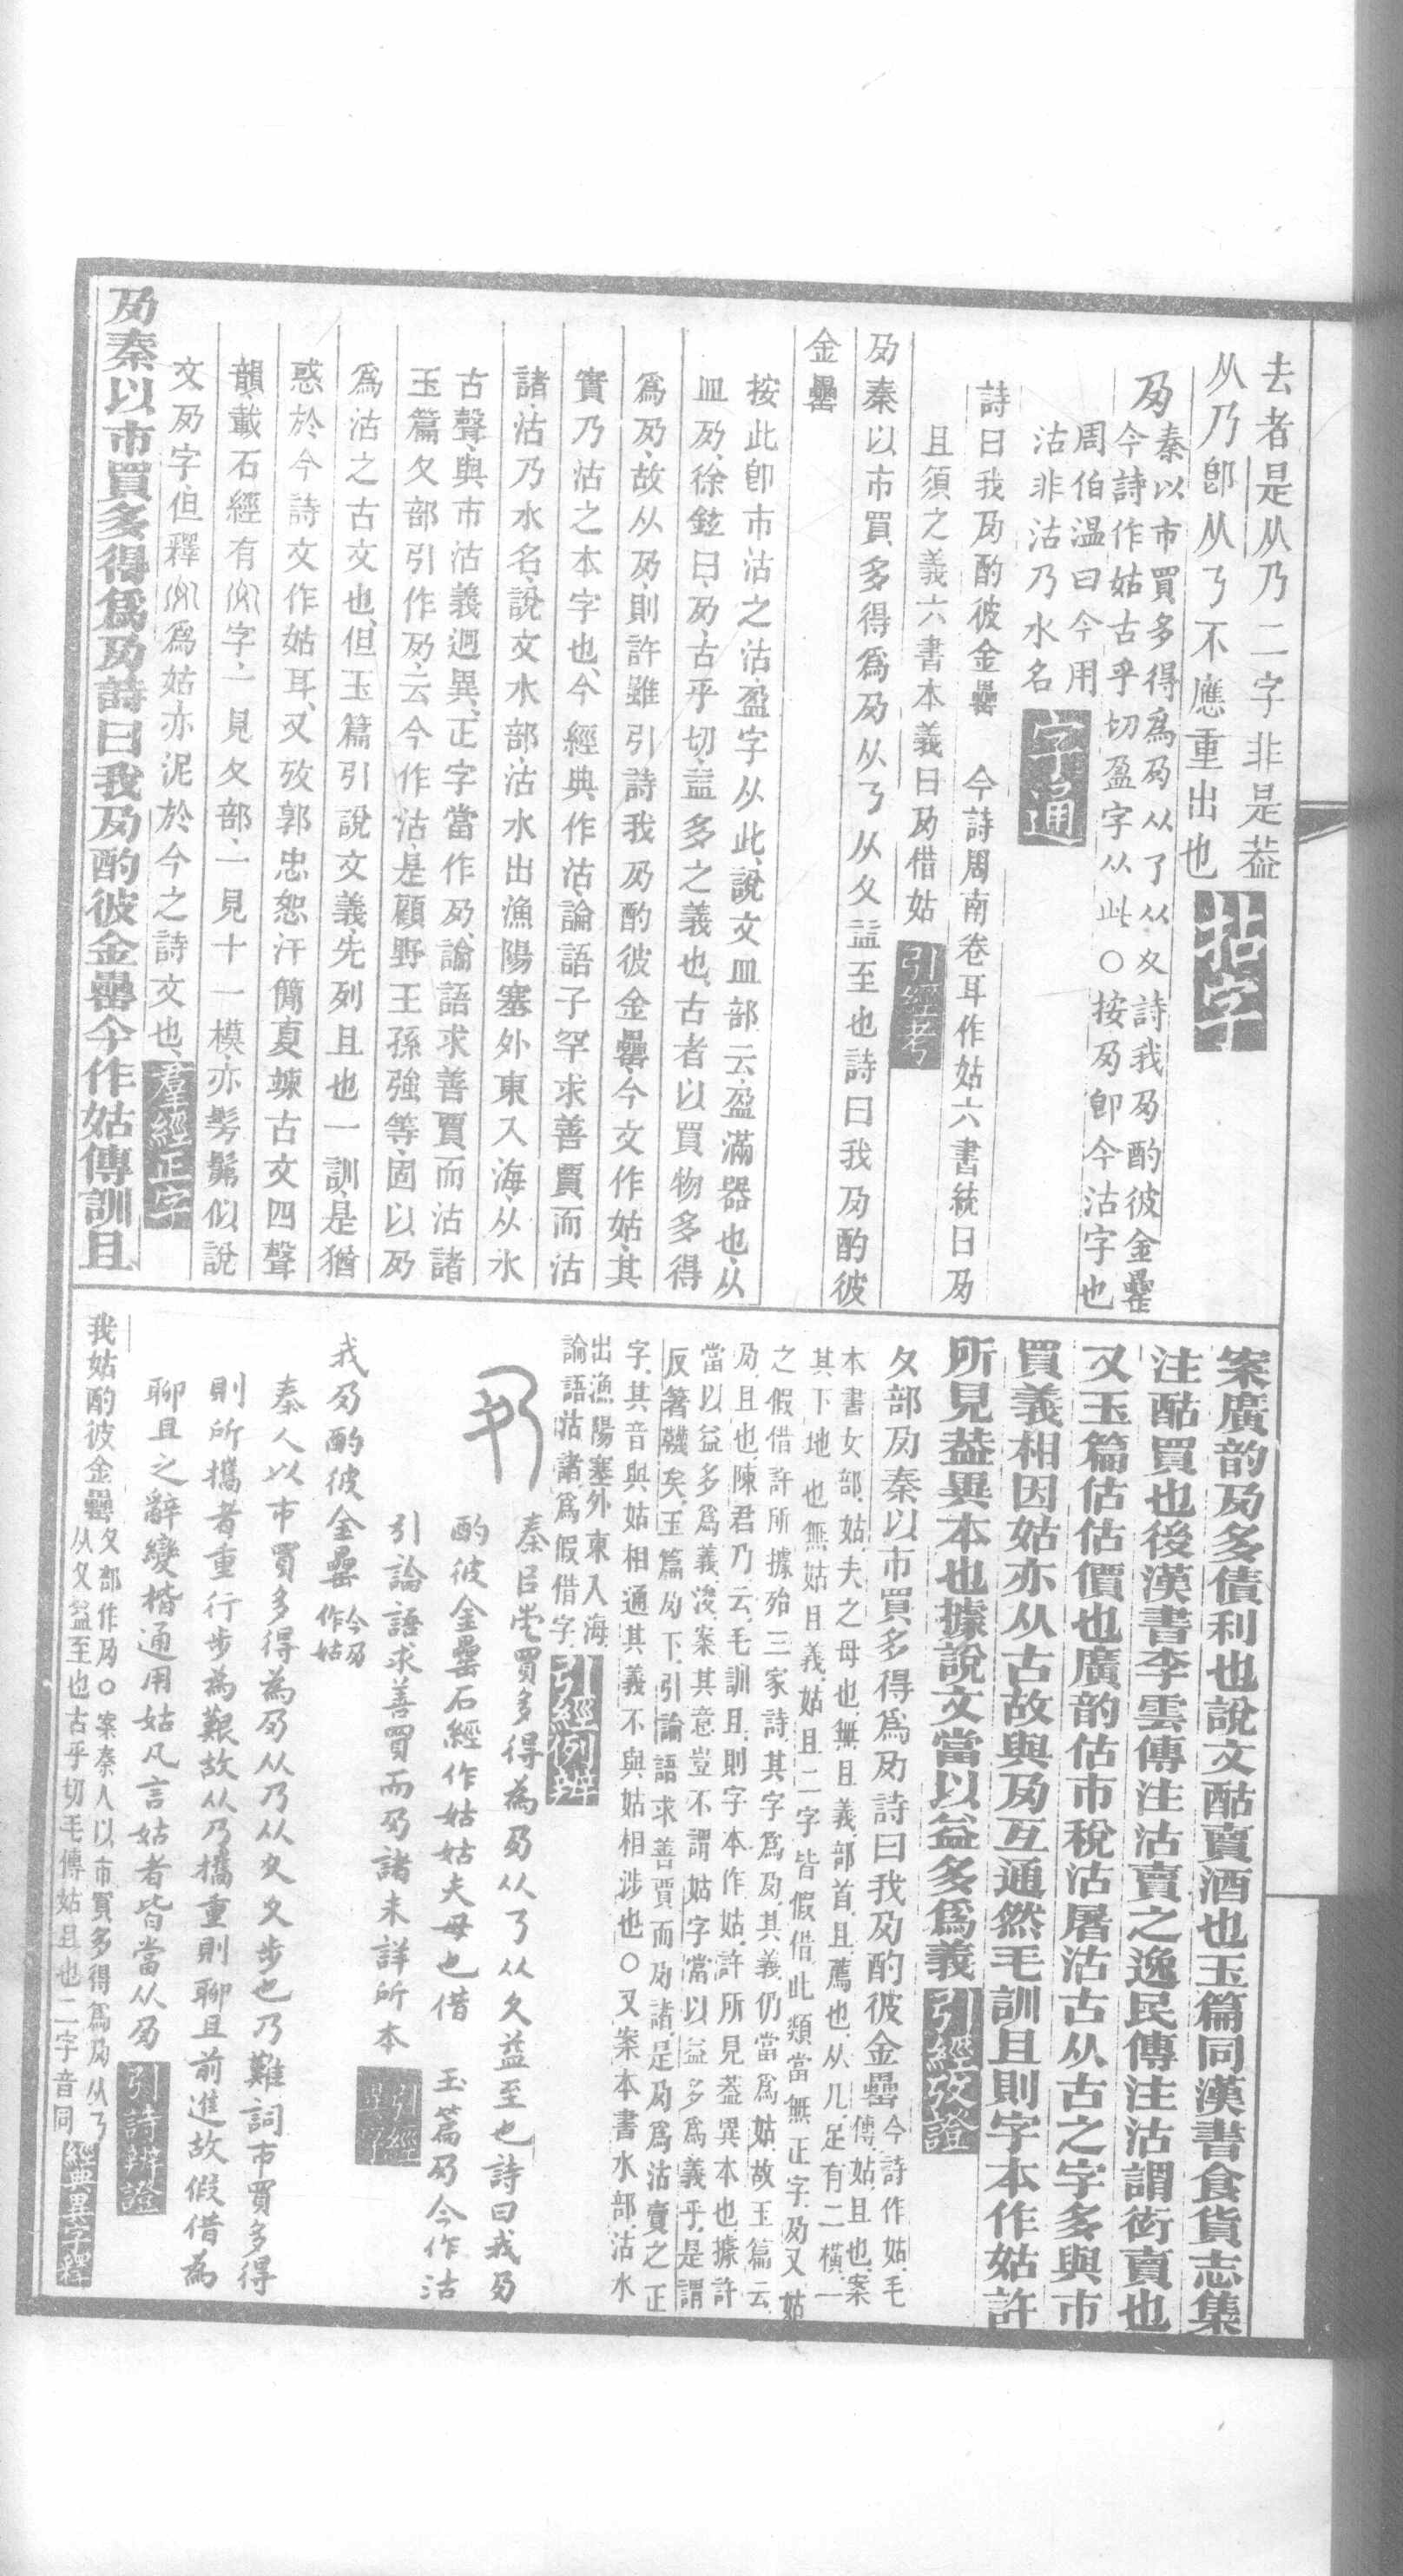 去者是从乃二字非是葢
从乃卽从丂不應重出也 拈字
夃秦以市買多得爲夃从了从夊詩我夃酌彼金罍
今詩作姑古乎切盈字从此○按夃卽今沽字也
周伯溫曰今用
沽非沽乃水名 字通
詩曰我夃酌彼金罍 今詩周南卷耳作姑六書統曰夃
且須之義六書本義曰夃借姑 引經考
夃秦以市買多得爲夃从丂从夊益至也詩曰我夃酌彼
金罍
按此卽市沽之沽盈字从此說文皿部云盈滿器也从
皿夃徐鉉曰夃古乎切益多之義也古者以買物多得
爲夃故从夃則許雖引詩我夃酌彼金罍今文作姑其
實乃沽之本字也今經典作沽論語子罕求善賈而沽
諸沽乃水名說文水部沽水出漁陽塞外東入海从水
古聲與市沽義迥異正字當作夃論語求善賈而沽諸
玉篇夊部引作夃云今作沽是顧野王孫強等固以夃
爲沽之古文也但玉篇引說文義先列且也一訓是猶
惑於今詩文作姑耳又攷郭忠恕汗簡夏竦古文四聲
韻載石經有字一見夊部一見十一模亦髣髴似說
文夃字但釋爲姑亦泥於今之詩文也 羣經正字
夃秦以市買多得爲夃詩曰我夃酌彼金罍今作姑傳訓且
案廣韵夃多債利也說文酤賣酒也玉篇同漢書食貨志集
注酤買也後漢書李雲傳注沽賣之逸民傳注沽謂衒賣也
又玉篇估估價也廣韵估市稅沽屠沽古从古之字多與市
買義相因姑亦从古故與夃互通然毛訓且則字本作姑許
所見葢異本也據說文當以益多爲義 引經攷證
夊部夃秦以市買多得爲夃詩曰我夃酌彼金罍今詩作姑毛
傳姑且也案
本書女部姑夫之母也無且義部首且薦也从几足有二橫一
其下地也無姑且義姑且二字皆假借此類當無正字夃又姑
之假借許所據殆三家詩其字爲夃其義仍當爲姑故玉篇云
夃且也陳君乃云毛訓且則字本作姑許所見葢異本也據許
當以益多爲義浚案其意豈不謂姑字當以益多爲義乎是謂
反著韈矣玉篇夃下引論語求善賈而夃諸是夃爲沽賣之正
字其音與姑相通其義不與姑相涉也○又案本書水部沽水
出漁陽塞外東入海
論語沽諸爲假借字 引經例辨
秦臣鉉買多得為夃从丂从夊益至也詩曰我夃
酌彼金罍石經作姑姑夫母也借 玉篇夃今作沽
引論語求善買而夃諸未詳所本 引經異字
我夃酌彼金罍今夃作姑
秦人以市買多得為夃从乃从夊夊步也乃難詞市買多得
則所攜者重行步為艱故从乃攜重則聊且前進故假借為
聊且之辭變楷通用姑凡言姑者皆當从夃 引詩辨證
我姑酌彼金罍夊部作夃○案秦人以市買多得爲夃从丂
从夊益至也古乎切毛傳姑且也二字音同 經典異字釋